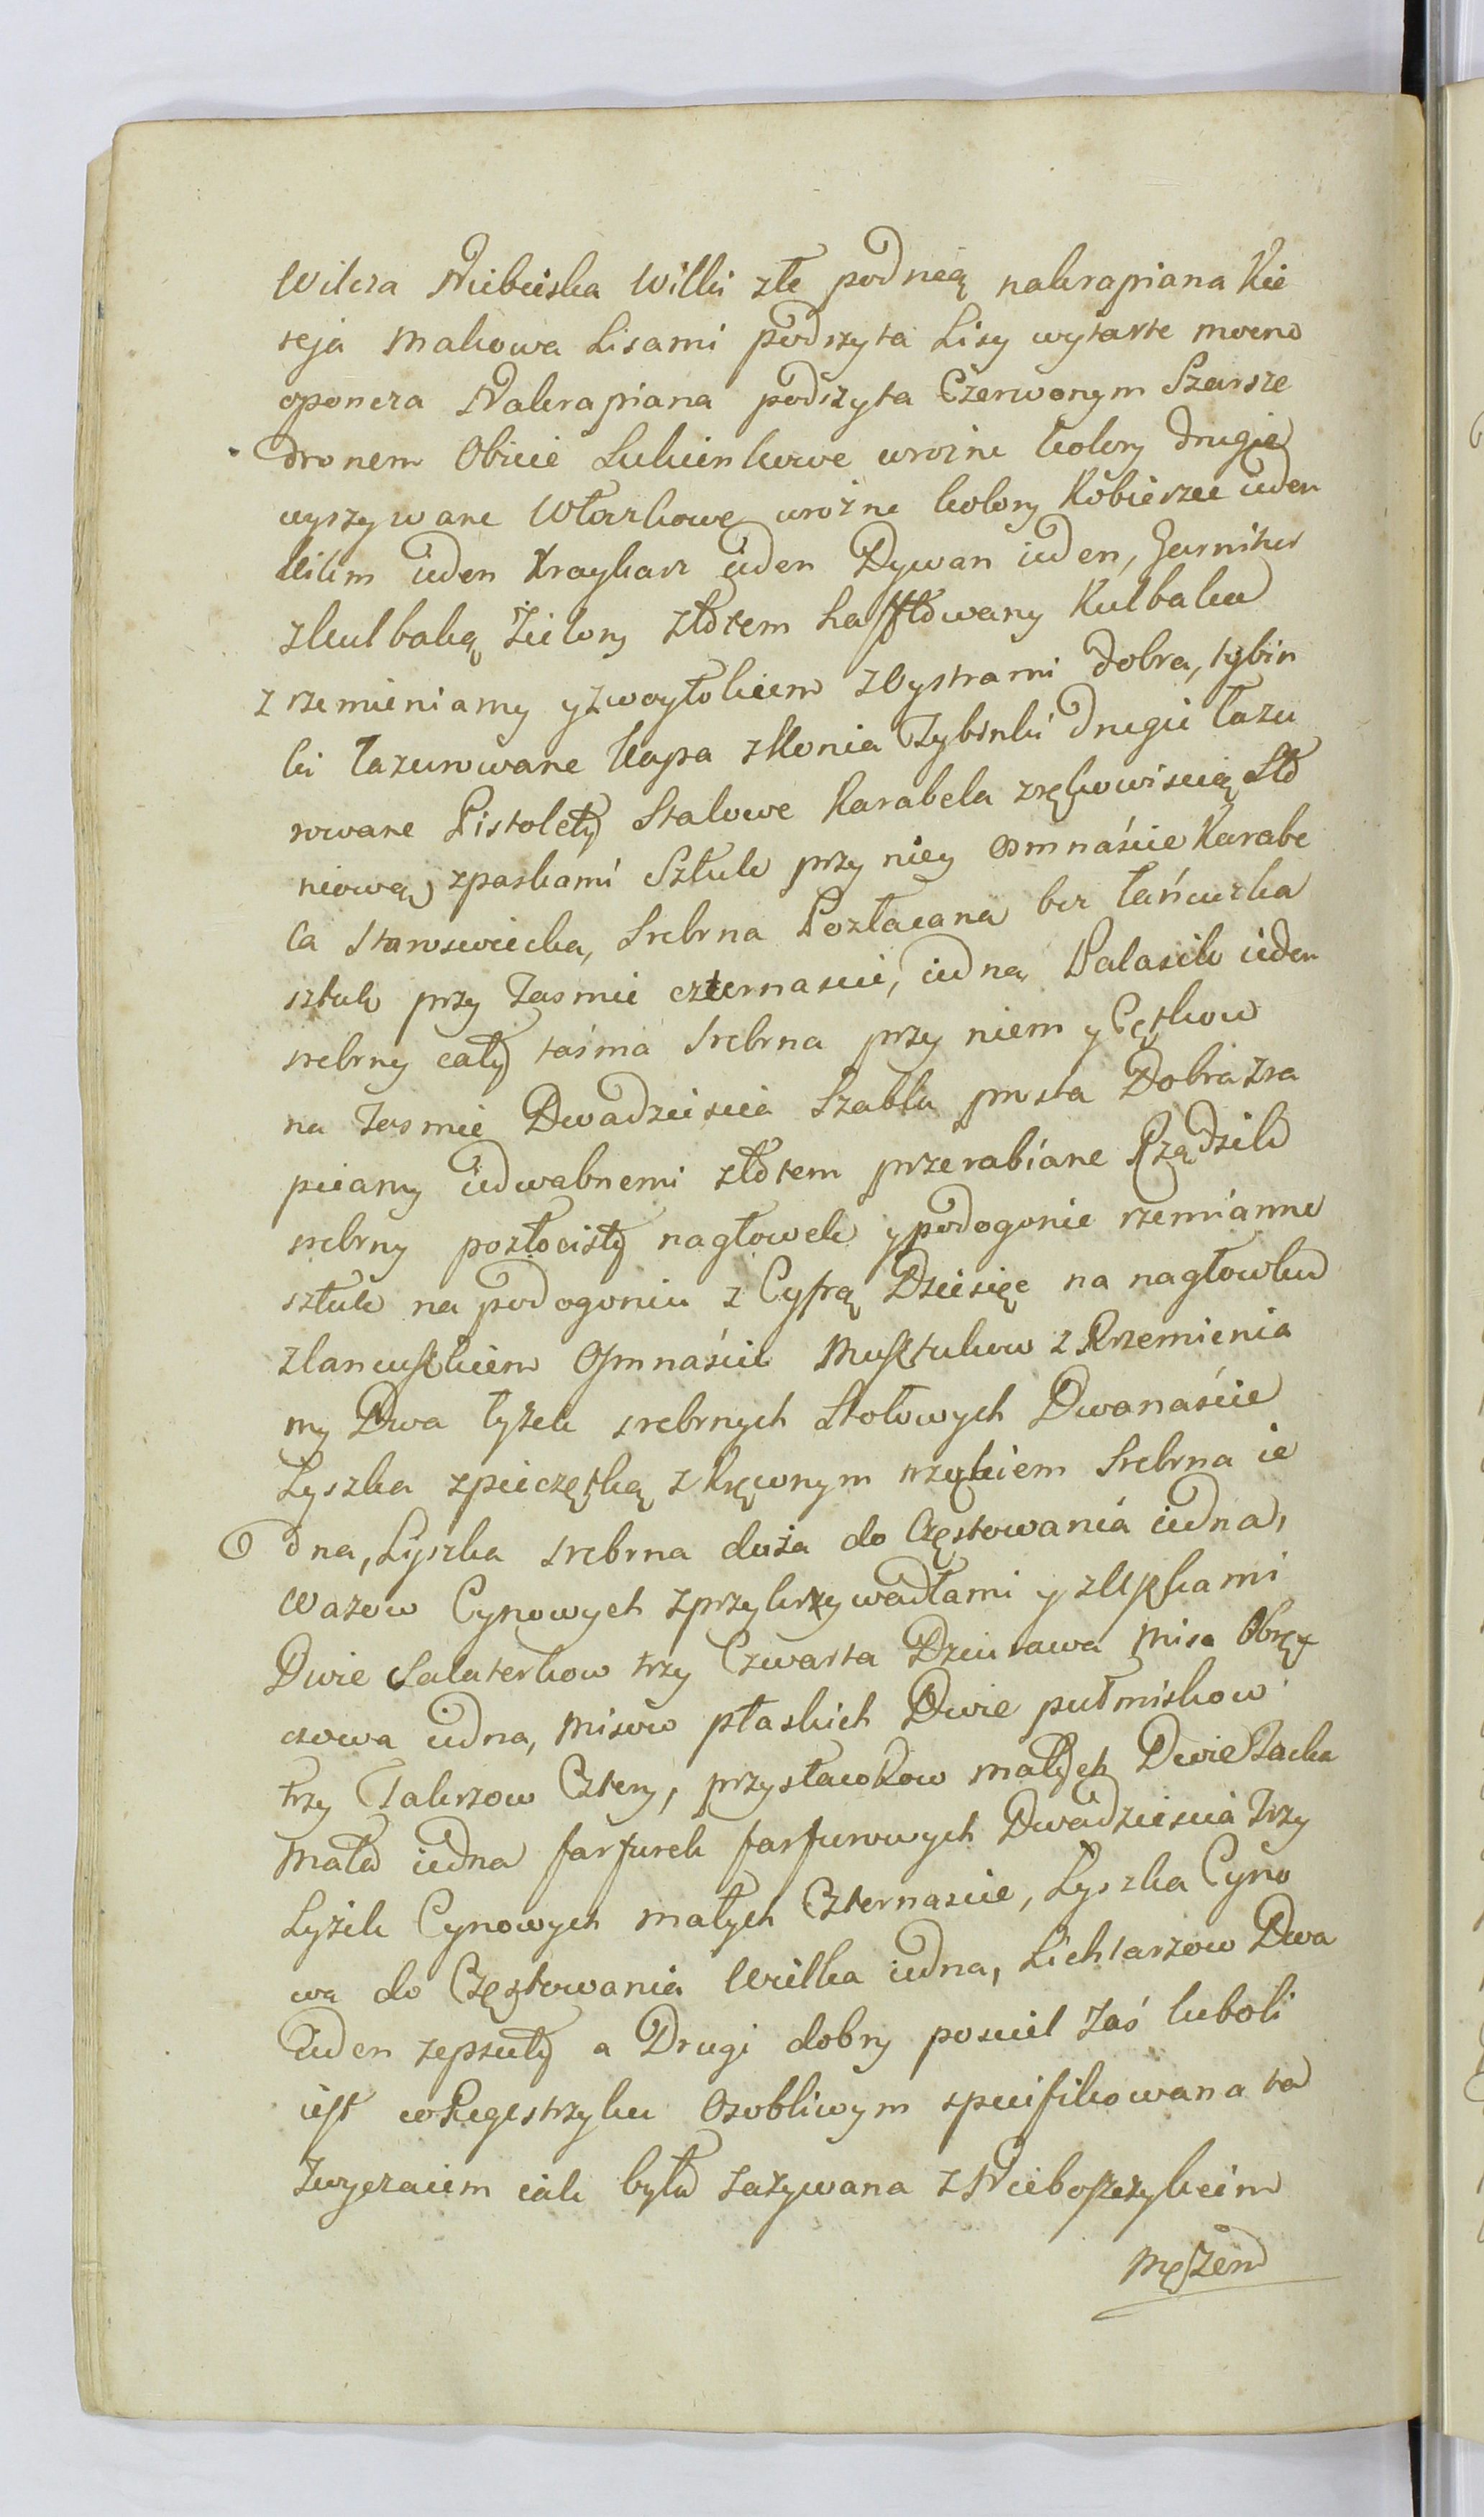 Wilcza Niebieska Wilki złe podnią nakrapiana Kie
reja Makowa Lisami podszyta Lisy wytarte mocno
oponcza Nakrapiana podszyta Czerwonym Szarsze
dronem Obicie Sukienkowe wrożne kolory drugie
wyszywane Włoczkowe wrożne kolory Kobierzec ieden
kilim ieden Kraykarz ieden Dywan ieden, Garnitur
zkulbaką Zielony złotem hafftowany Kulbaka
z rzemieniamy yzwoytokiem zbystrami dobra, tybin
ki łazurowane kapa zkonia Tybinki drugie łazu
rowane Pistolety Stalowe Karabela zrękowiscią Sło
niową zpaskami Sztuk przy niey osmnáście Karabe
la Staroswiecka, Srebrna Pozłacana bez łańcuzka
sztuk przy Tasmie czternascie, iedną Palasik ieden
srebrny cały tasma Srebrna przy niem y Cętkow
na Tasmie Dwadziescia Szabla prosta Dobra zra
pciamy iedwabnemi złotem przerabiane Rządzik
srebrny pozłocisty nagłowek ypodogonie rzemianne
sztuk na podogoniu z Cyfrą Dziesięc na nagłowku
zlancuszkiem Osmnáscie Musztukow z Rzemienia
my Dwa łyżek srebrnych Stołowych Dwanaście
Lyszka zpieczętką z kręconym trzękiem Srebrna ie
dna, Lyszka srebrna duża do Częstowania iedna,
Wazow Cynowych zprzykrzywadłami y zUszkami
Dwie Salaterkow trzy Czwarta Dziurawa Misa Obrę
czowa iedna, Misow płaskich Dwie pułmiskow
trzy Talerzow Cztery, przystawkow małych Dwie Tacka
Mała iedna farfurek farfurowych Dwadziescia Trzy
Lyżek Cynowych małych Czternascie, Lyszka Cyno
wa do Częstowania Wielka iedna, Lichtarzow Dwa
Ieden zepsuty a Drugi dobry posciel Zaś luboli
iest wRegestrzyku Osobliwym specifikowana ta
Zwyczaiem iak była zazywana z Nieboszczykiem
Mężem